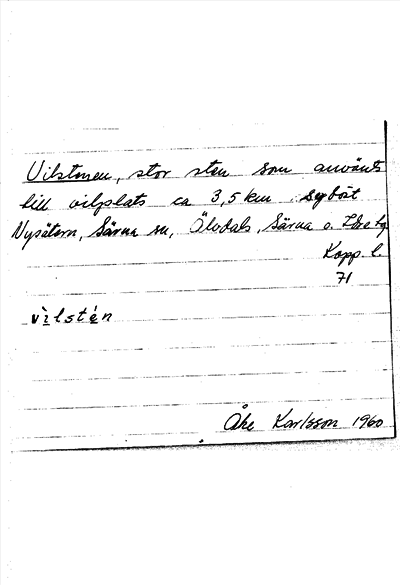 Vilstenen, stor sten som använts
till vilplats ca 3,5 km sydöst
Nysätern, Särna sn, Älvdals, Särna o. Idre tg
Kopp. l.
71
vìlsté̀n
Åke Karlsson 1960